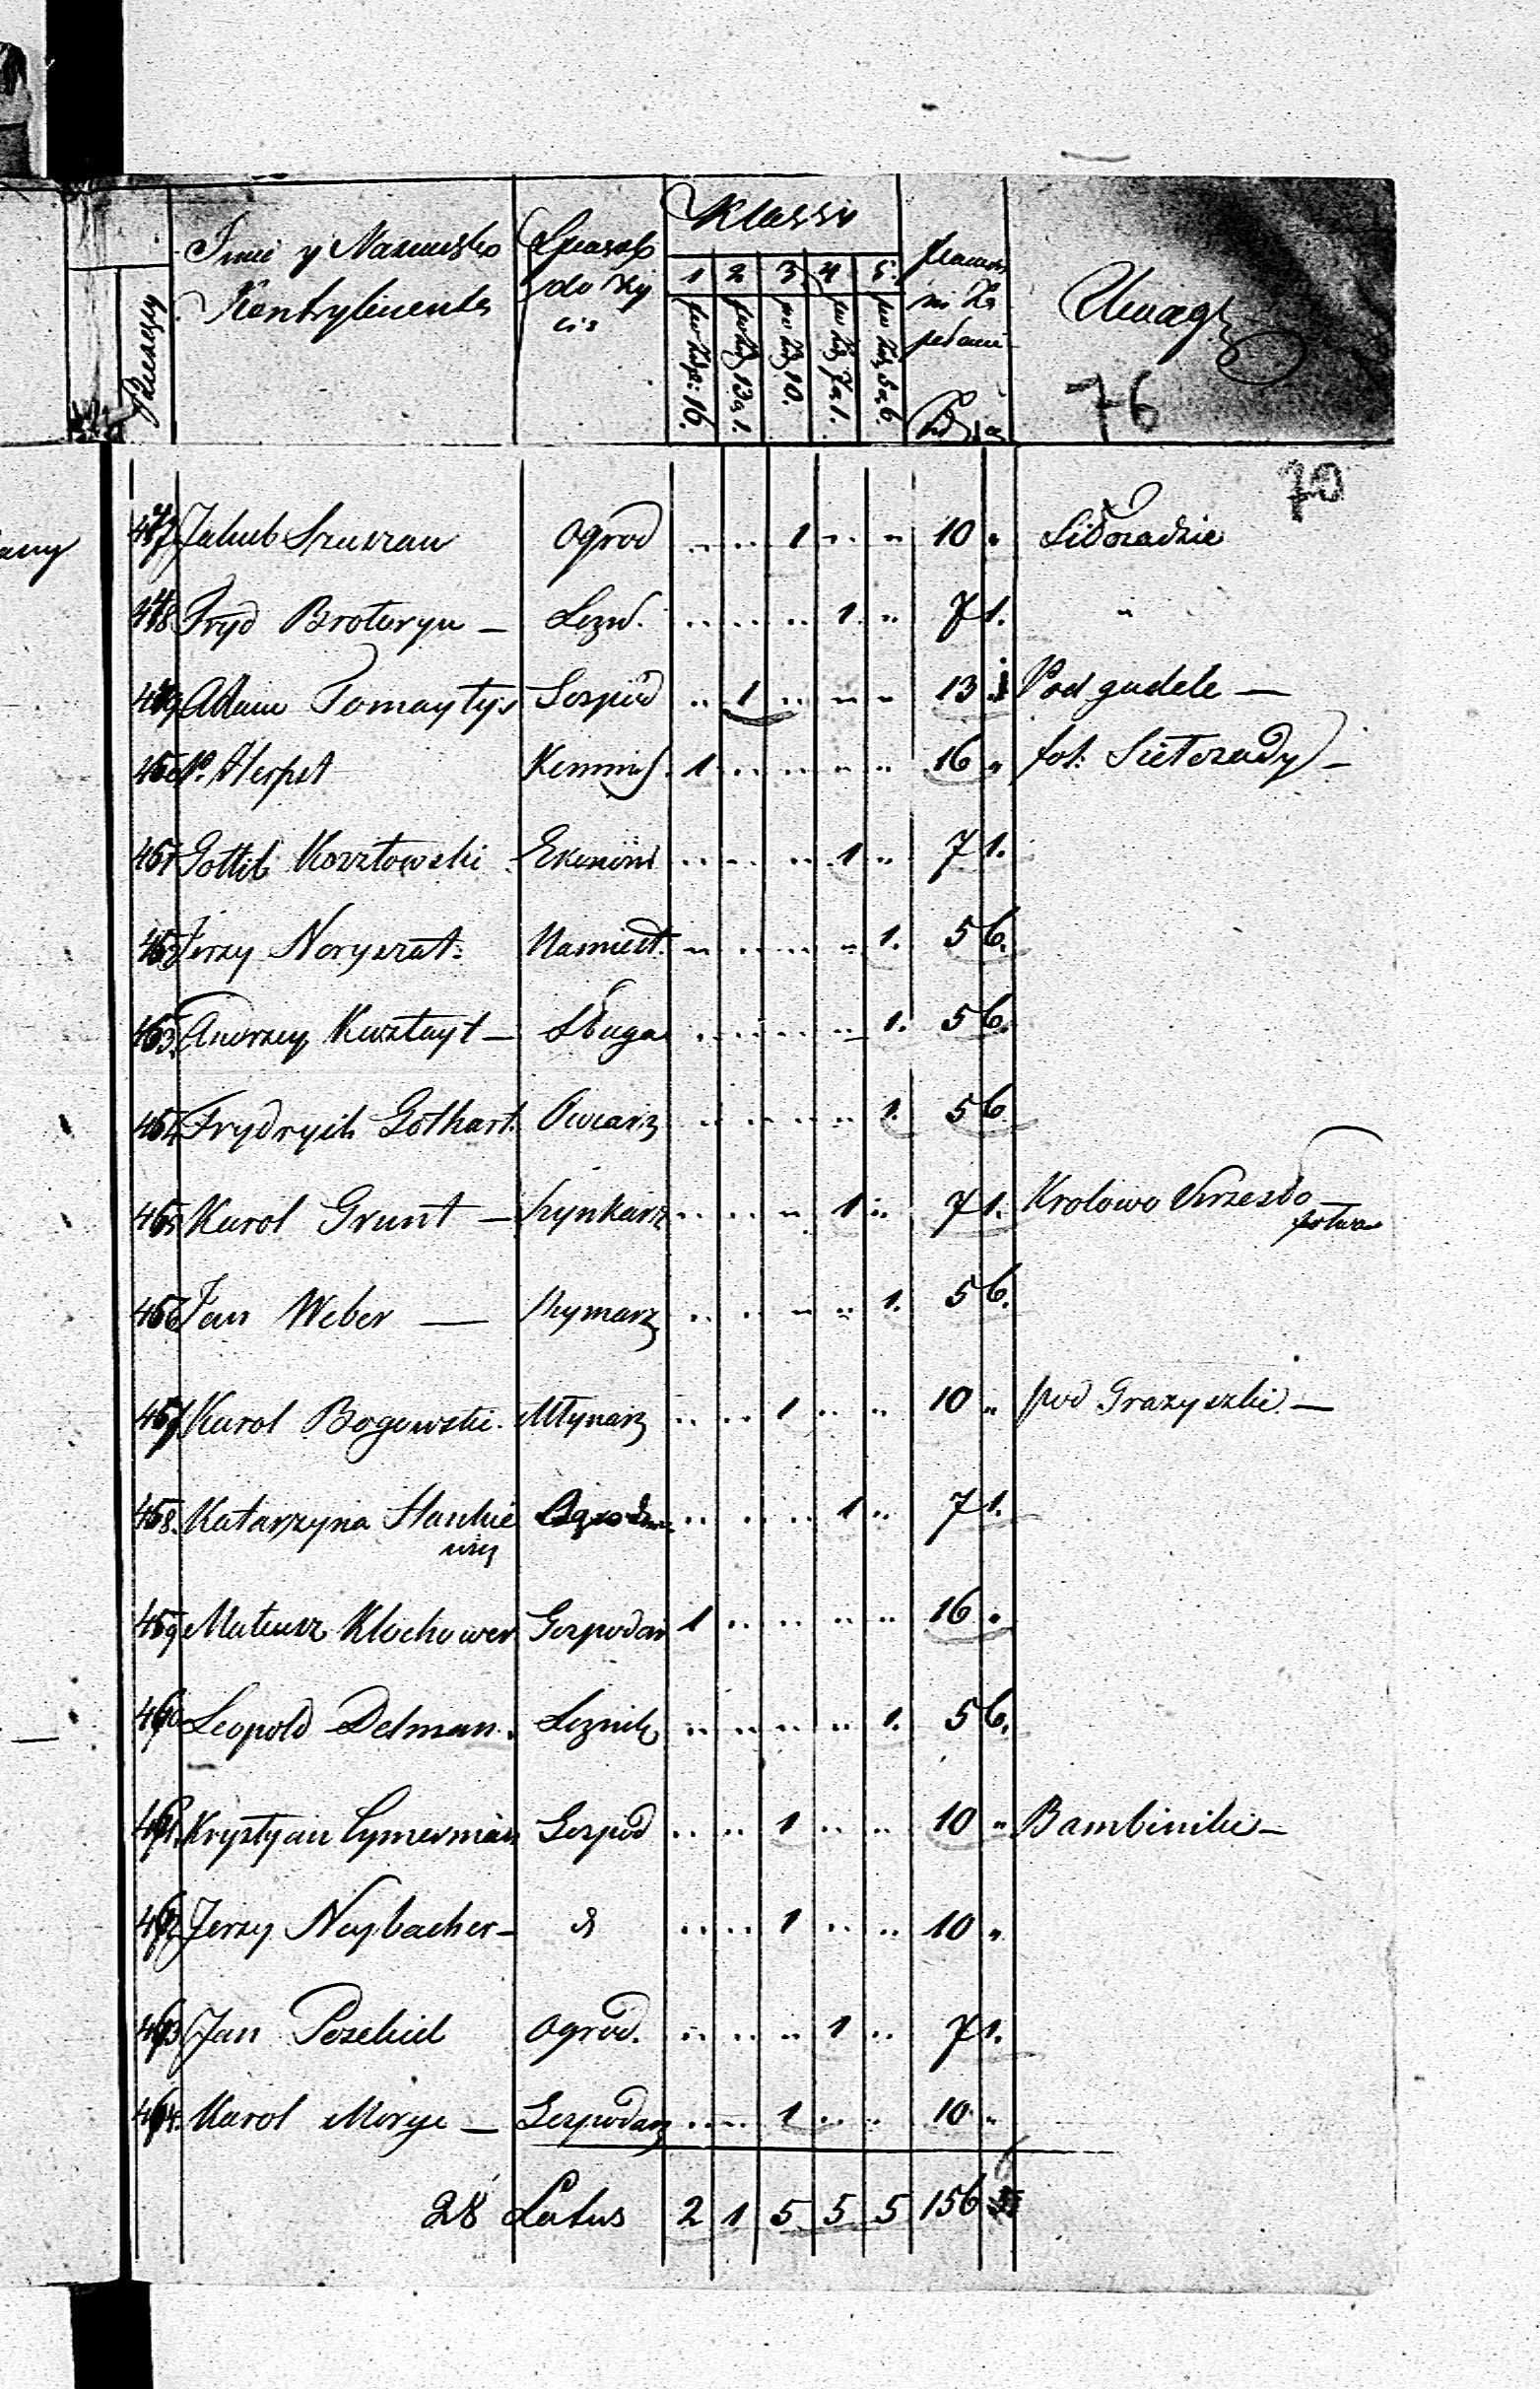 Klassy
Imie y Nazwisko Sposob
Kontrybuenta do Ży
cia
1 2 3. 4 5.
Uwagi
po Złp: 16. po Zł 13 g 1. po Zł 10. po Zł 7 g 1. po Zł 5 g 6.
76
70
447 Jakub Szuszau Ogrod .. .. 1 .. .. 10 "
448 Fryd Broteryn — Lezn. .. .. .. 1. .. 7 1. "
449 Adam Tomaytys Gospód .. 1 .. .. .. 13 1 Pod gudele —
450 P. Herpst 1 .. .. .. .. 16 " fol:
451 Gottlib Kozłowski Ekonom .. .. .. 1 .. 7 1.
452 Jerzy Noryszat: Namiest. .. .. .. .. 1. 5 6.
453. Andrzey Kusztayt — Sługa .. .. .. .. 1. 5 6.
454 Frydrych Gothart. Owczarz .. .. .. .. 1. 5 6
455 Karol Grunt — Szynkarz .. .. .. 1 .. 7 1. Krolowo Krzesło
456 Jan Weber — Rymarz .. .. .. .. 1. 5 6.
457 Karol Bogowski. Młynarz .. .. 1 .. .. 10 " pod Grazyszki —
458. Katarzyna .. .. .. 1 .. 7 1.
459 Mateusz Klochower Gospodar 1 .. .. .. .. 16 "
460 Leopold Delman. Leznik .. .. .. .. 1. 5 6.
461. Krystyan Cymerman Gospod .. .. 1 .. .. 10 " Bambiniki —
462 Jerzy Neybacher — d .. .. 1 .. .. 10 "
463 Jan Pozekiel Ogrod. .. .. .. 1 .. 7 1.
464. Karol Morye — Gospodarz .. .. 1 .. .. 10 "
28 Latus 2 1 5 5 5 156